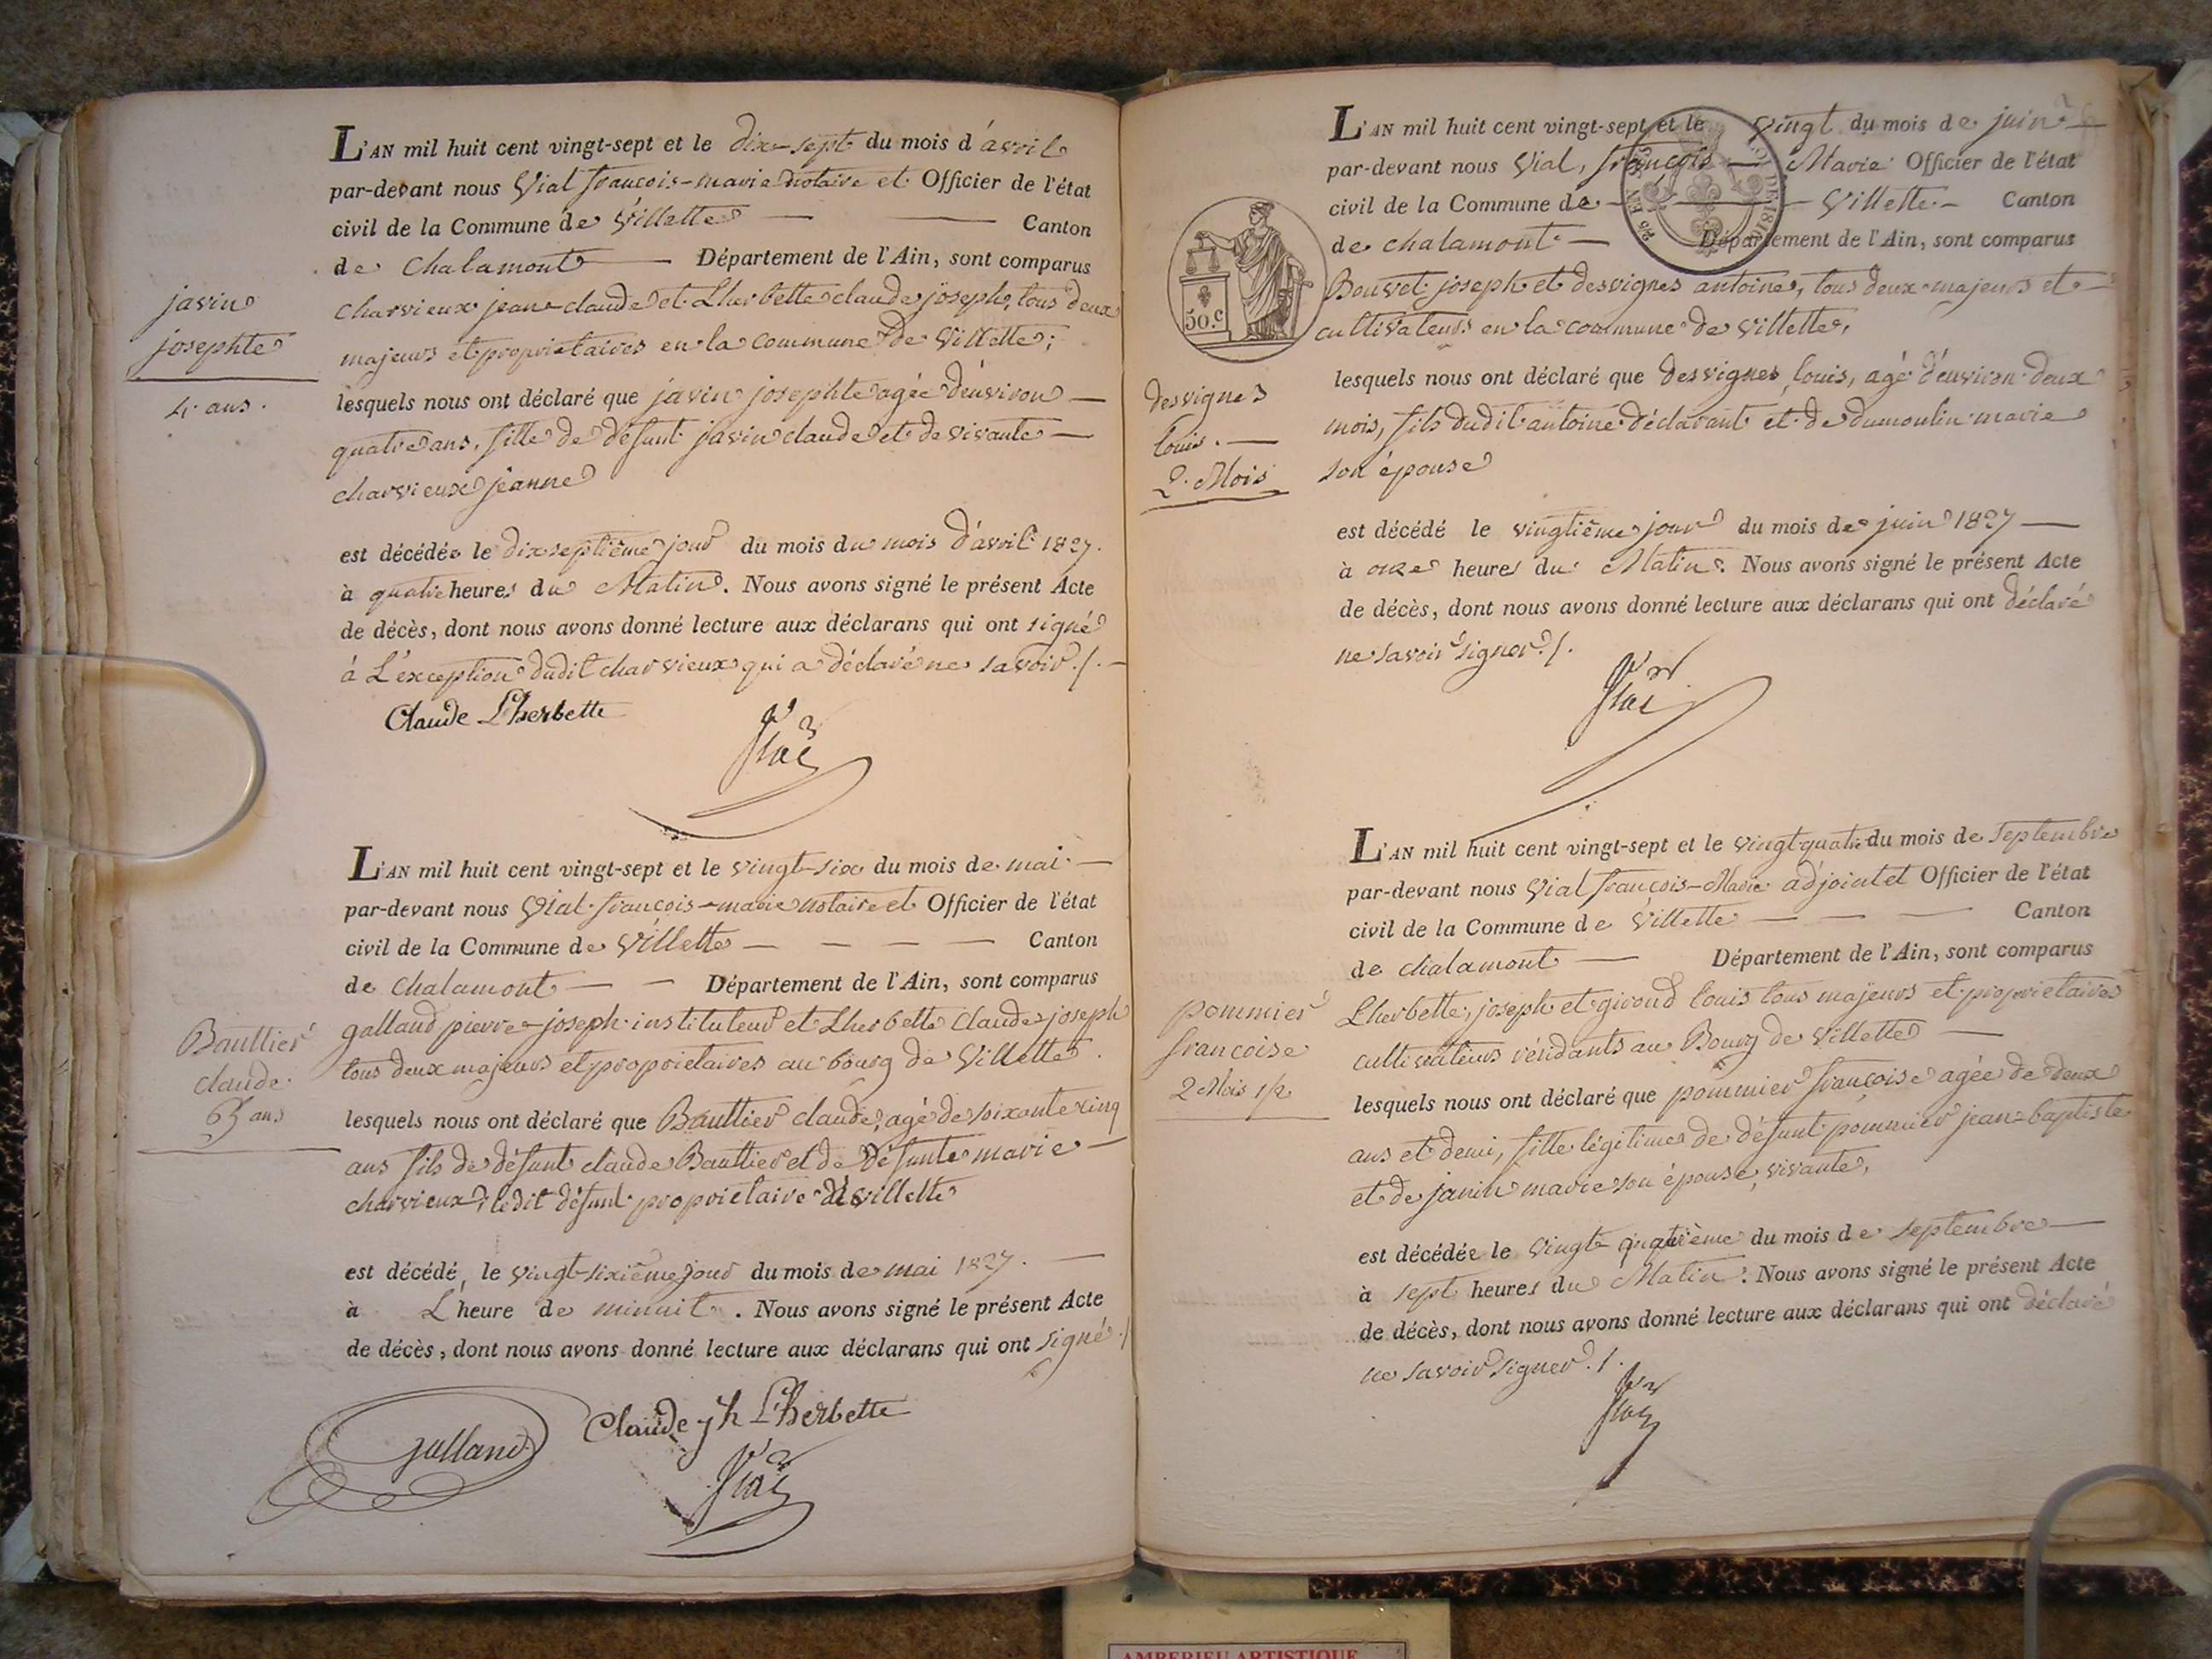 L'AN mil huit cent vingt-sept et le dix-sept du mois d'avril
par-devant nous Vial françois-marie notaire et Officier de l'état
civil de la Commune de Villette — — Canton
de Chalamont — Département de l'Ain, sont comparus
javin
josephte
4 ans.
charvieux jean-claude et Lherbette claude joseph, tous deux
majeurs et propriétaires en la commune de Villette;
lesquels nous ont déclaré que javin josephte agée d'environ —
quatre ans, fille de défunt javin claude et de vivante —
charvieux jeanne
est décédée le dix septième jour du mois du mois d'avril 1827.
à quatre heures du Matin. Nous avons signé le présent Acte
de décès, dont nous avons donné lecture aux déclarans qui ont signé
à L'exception dudit charvieux qui a déclaré ne savoir./.—
Claude L'herbette
L'AN mil huit cent vingt-sept et le vingt-six du mois de mai —
par-devant nous Vial françois-marie notaire et Officier de l'état
civil de la Commune de Villette — — — — Canton
de Chalamont — — Département de l'Ain, sont comparus
Baultier
claude
65 ans
galland pierre-joseph instituteur et Lherbette Claude joseph
tous deux majeurs et propriétaires au bourg de Villette.
lesquels nous ont déclaré que Baultier claude, agé de soixante cinq
ans fils de défunt claude Baultier et de défunte marie —
charvieux, ledit défunt propriétaire à Villette
est décédé, le vingt-sixième jour du mois de mai 1827. —
à L'heure de minuit. Nous avons signé le présent Acte
de décès, dont nous avons donné lecture aux déclarans qui ont signé./
galland
Claude jh L'herbette
L'AN mil huit cent vingt-sept et le Vingt du mois de juin
par-devant nous Vial, françois — Marie Officier de l'état
civil de la Commune de — Villette — Canton
de chalamont — Département de l'Ain, sont comparus
50.C
Bouvet joseph et desvignes antoine, tous deux majeurs et —
cultivateurs en la commune de Villette,
desvignes
louis. —
2. Mois
lesquels nous ont déclaré que desvignes louis, agé d'environ deux
mois, fils dudit antoine déclarant et de dumoulin marie
son épouse
est décédé le vingtième jour du mois de juin 1827 —
à onze heures du Matin. Nous avons signé le présent Acte
de décès, dont nous avons donné lecture aux déclarans qui ont déclaré
ne savoir signer./.
L'AN mil huit cent vingt-sept et le vingt quatre du mois de Septembre
par-devant nous Vial françois-Marie adjoint et Officier de l'état
civil de la Commune de Villette — — — Canton
de chalamont — Département de l'Ain, sont comparus
pommier
françoise
2 Mois 1/2
Lherbette, joseph et giroud louis tous majeurs et propriétaires
cultivateurs résidants au Bourg de Villette —
lesquels nous ont déclaré que pommier françoise agée de deux
ans et demi, fille légitime de défunt pommier jean-baptiste
et de janin marie son épouse, vivante,
est décédée le vingt quatrième du mois de septembre —
à sept heures du Matin. Nous avons signé le présent Acte
de décès, dont nous avons donné lecture aux déclarans qui ont déclaré
ne savoir signer./.
AMBERIEU ARTISTIQUE